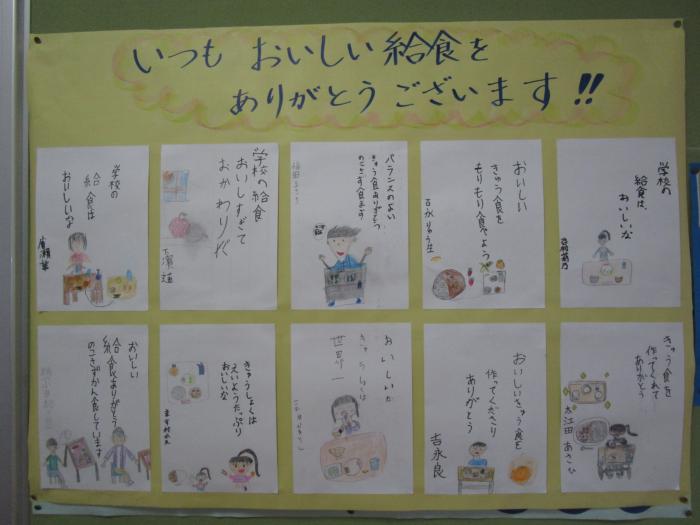 いつも おいしい給食を
ありがとうございます!!
学校の
給食は、
おいしいな
おいしい
きゅう食を
もりもり食べよう
バランスのよい
きゅう食ありがとう
のこさず食ます
学校の給食
おいしすぎて
おかわりだ
学校の
給食は
おいしいな
廣瀬華
きゅう食を
作ってくれて
ありがとう
太江田 あさひ
おいしいきゅう食を
作ってくださり
ありがとう
吉永良
おいしいな
きゅうしょくは
世界一
きゅうしょくは
えいようたっぷり
おいしいな
おいしい
給食ありがとう
のこさずかん食しています